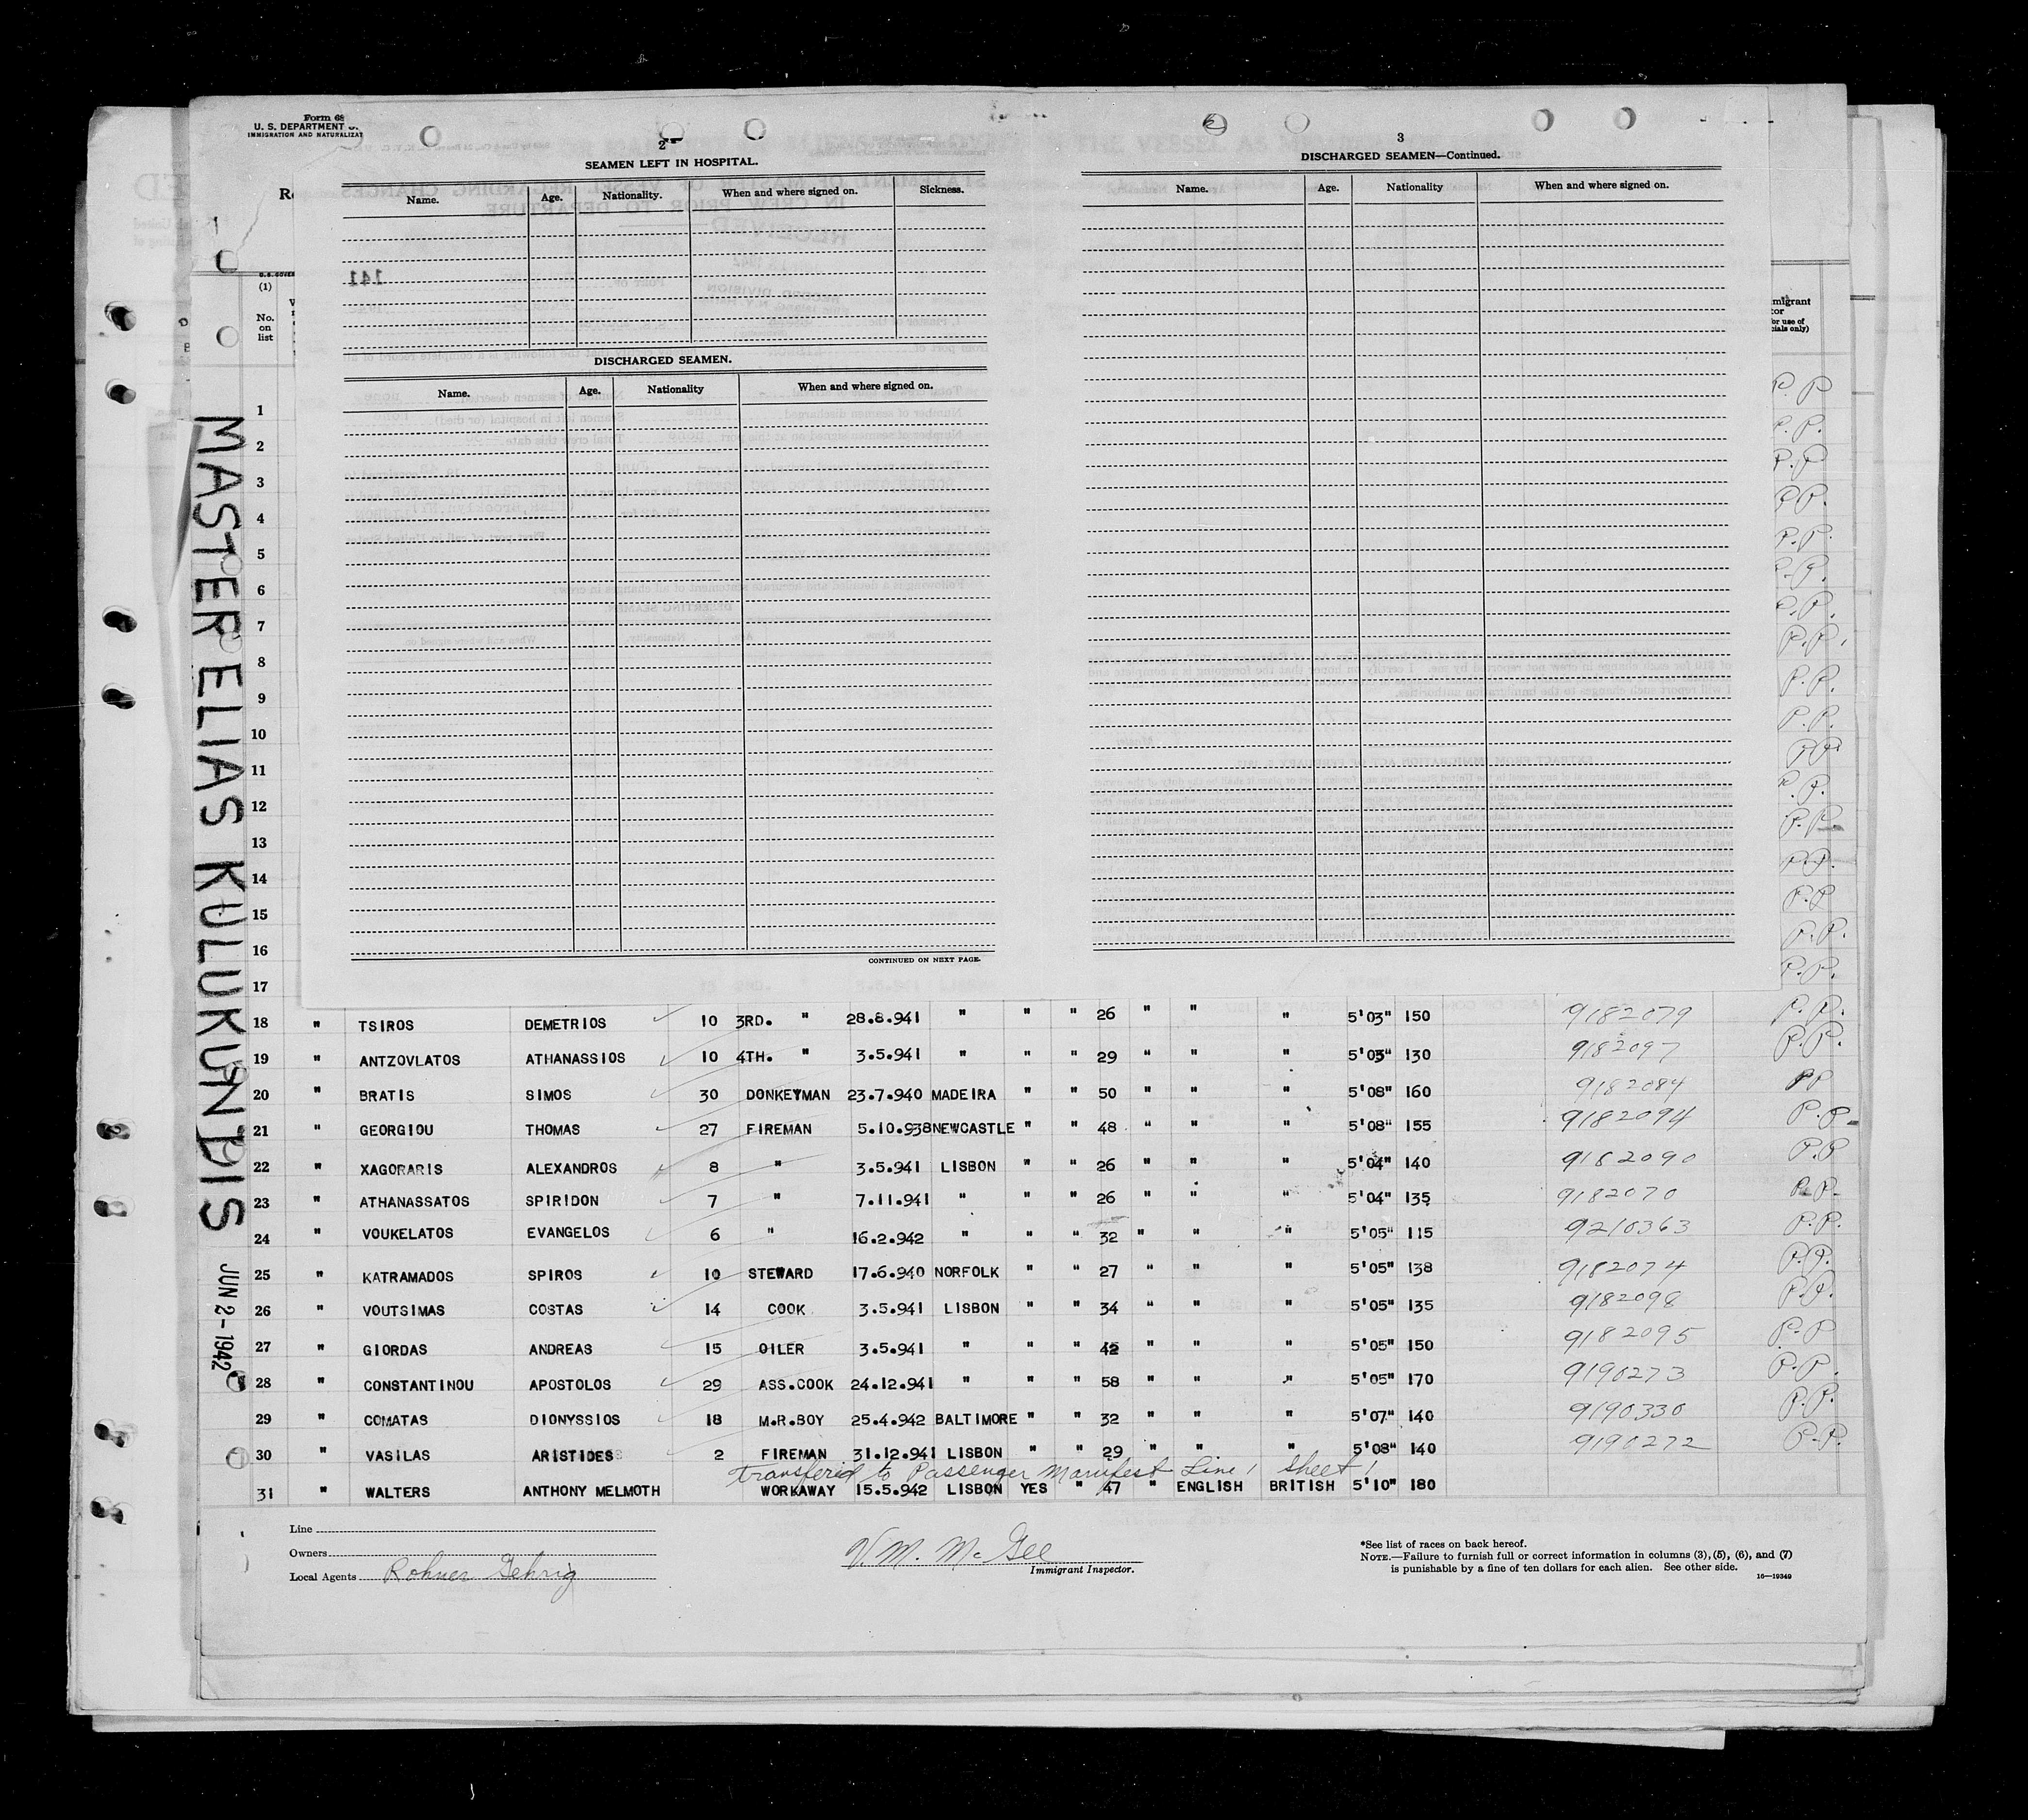 Form 68
U. S. DEPARTMENT
IMMIGRATION AND NATURALIZAT
2
SEAMEN LEFT IN HOSPITAL.
Name. Age. Nationality. When and where signed on. Sickness.
141
DISCHARGED SEAMEN.
Name. Age. Nationality When and where signed on.
CONTINUED ON NEXT PAGE.
3
DISCHARGED SEAMEN—Continued.
Name. Age. Nationality When and where signed on.
(1)
No. on list
MASTER ELIAS KULUKUNDIS
JUN 2-1942
1 P.P
2 P.P.
3 P.P
4 P.P.
5 P.P.
6 P.P.
7 P.P.
8 P.P.
9 P.P.
10 P.P.
11 P.P.
12 P.P.
13 P.P.
14 P.P.
15 P.P
16 P.P.
17 P.P.
18 " TSIROS DEMETRIOS 10 3RD. " 28.8.941 " " " 26 " " " 5'03" 150 9182079 P.P.
19 " ANTZOVLATOS ATHANASSIOS 10 4TH. " 3.5.941 " " " 29 " " " 5'03" 130 9182097 P.P.
20 " BRATIS SIMOS 30 DONKEYMAN 23.7.940 MADEIRA " " 50 " " " 5'08" 160 9182084 PP
21 " GEORGIOU THOMAS 27 FIREMAN 5.10.938 NEWCASTLE " " 48 " " " 5'08" 155 9182094 P.P.
22 " XAGORARIS ALEXANDROS 8 " 3.5.941 LISBON " " 26 " " " 5'04" 140 9182090 P.P
23 " ATHANASSATOS SPIRIDON 7 " 7.11.941 " " " 26 " " " 5'04" 135 9182070 P.P.
24 " VOUKELATOS EVANGELOS 6 " 16.2.942 " " " 32 " " " 5'05" 115 9210363 P.P.
25 " KATRAMADOS SPIROS 10 STEWARD 17.6.940 NORFOLK " " 27 " " " 5'05" 138 9182074 P.P.
26 " VOUTSIMAS COSTAS 14 COOK 3.5.941 LISBON " " 34 " " " 5'05" 135 9182098 P.P.
27 " GIORDAS ANDREAS 15 OILER 3.5.941 " " " 42 " " " 5'05" 150 9182095 P.P
28 " CONSTANTINOU APOSTOLOS 29 ASS.COOK 24.12.941 " " " 58 " " " 5'05" 170 9190273 P.P.
29 " COMATAS DIONYSSIOS 18 M.R.BOY 25.4.942 BALTIMORE " " 32 " " " 5'07" 140 9190330 P.P.
30 " VASILAS ARISTIDES 2 FIREMAN 31.12.941 LISBON " " 29 " " " 5'08" 140 9190272 P.P.
Transferred to Passenger Manifest Line 1 Sheet 1
31 " WALTERS ANTHONY MELMOTH WORKAWAY 15.5.942 LISBON YES " 47 " ENGLISH BRITISH 5'10" 180
Line
Owners
Local Agents Rohner Gehrig
V. M. McGee
Immigrant Inspector.
*See list of races on back hereof.
NOTE.—Failure to furnish full or correct information in columns (3), (5), (6), and (7)
is punishable by a fine of ten dollars for each alien. See other side.
16—19349